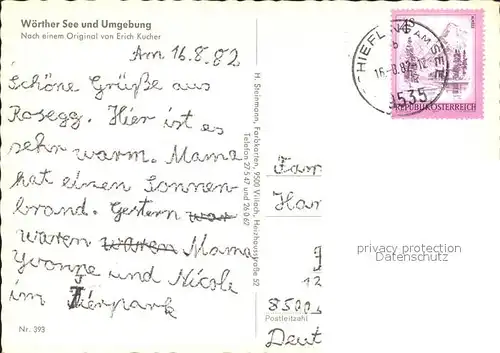 Wörther See und Umgebung
Nach einem Original von Erich Kucher
Am 16.8.82
Schöne Grüße aus
Rosegg. Hier ist es
sehr warm. Mama
hat einen Sonnen-
brand. Gestern war
waren waren Mama
Yvonne und Nicole
im Tierpark
Nr. 393
H. Steinmann, Farbkarten, 9500 Villach, Heizhausstraße 52
Telefon 27547 und 26062
16.-8.82-12
9535
REPUBLIK ÖSTERREICH
Fam
Han
12
8500
Postleitzahl
Deut
privacy protection
Datenschutz